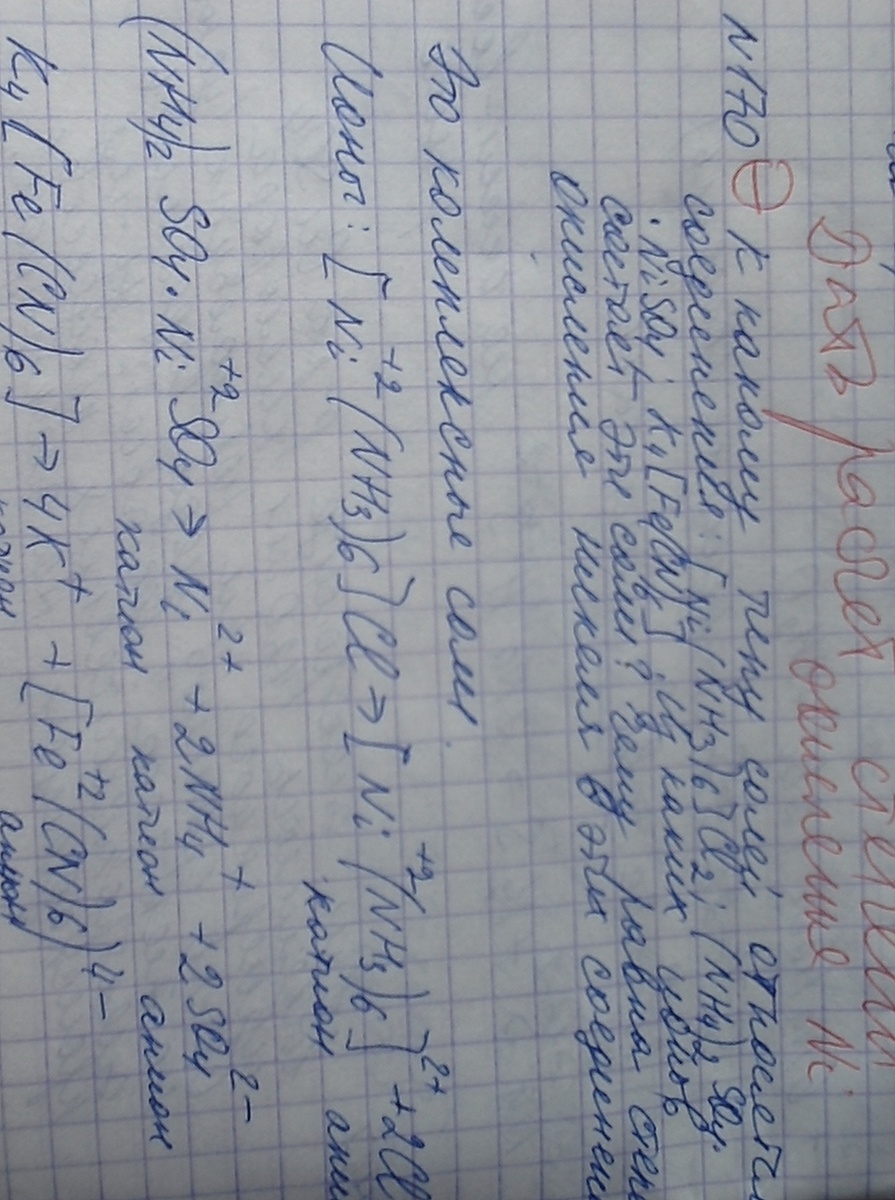 Дать расчет степени
окисления Ni
N170 ⊖ К какому типу солей относят
соединения: [Ni(NH3)6]Cl2; (NH4)2SO4·
·NiSO4; K4[Fe(CN)6]. Из каких ионов
состоят эти соли? Чему равна степе
окисления никеля в этих соединени
Это комплексные соли.
Ионы: [Ni+2(NH3)6]Cl → [Ni+2(NH3)6]2+ + 2Cl
катион ани
(NH4)2 SO4·Ni+2SO4 → Ni2+ + 2NH4+ + 2SO42-
катион катион анион
K4[Fe(CN)6] → 4K+ + [Fe+2(CN)6]4-
катион анион